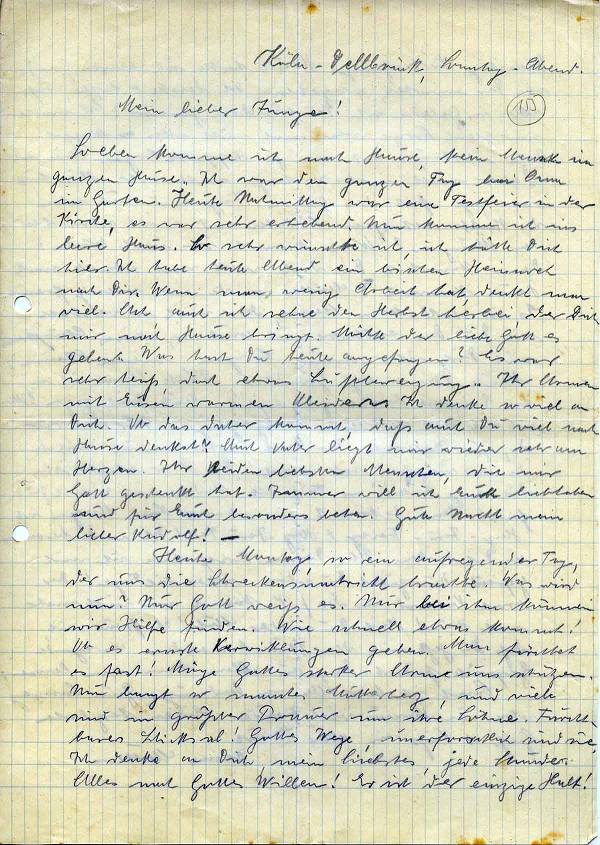 Köln-Dellbrück, Sonntag-Abend.
100
Mein lieber Junge!
Soeben komme ich nach Hause, kein Mensch im
ganzen Hause. Ich war den ganzen Tag bei Oma
im Garten. Heute Nachmittag war eine Festfeier in der
Kirche, es war sehr erhebend. Nun komme ich ins
leere Haus. So sehr wünschte ich, ich hätte Dich
hier. Ich habe heute Abend ein bischen Heimweh
nach Dir. Wenn man wenig Arbeit hat, denkt man
viel. Ach auch ich sehne den Herbst herbei der Dich
mir nach Hause bringt. Möchte der liebe Gott es
geben. Was hast Du heute angefangen? Es war
sehr heiß, doch etwas Luftbewegung. Ihr Armen
mit Euren warmen Kleidern. Ich denke so viel an
Dich. Ob das daher kommt, daß auch Du viel nach
Hause denkst? Auch Vater liegt mir wieder sehr am
Herzen. Ihr beiden liebsten Menschen, die mir
Gott geschenkt hat. Immer will ich Euch liebhaben
und für Euch besonders beten. Gute Nacht mein
lieber Rudolf! —
Heute Montag, so ein aufregender Tag,
der uns die Schreckensnachricht brachte. Was wird
nun? Nur Gott weiß es. Nur bei ihm können
wir Hilfe finden. Wie schnell etwas kommt!
Ob es ernste Verwicklungen geben. Man fürchtet
es fast! Möge Gottes starker Arm uns schützen.
Nun bangt so manches Mutterherz, und viele
sind in größter Trauer um ihre Söhne. Furcht-
bares Schicksal! Gottes Wege, unerforschlich sind sie.
Ich denke an Dich, mein Liebstes, jede Stunde.
Alles nach Gottes Willen! Er ist der einzige Halt!